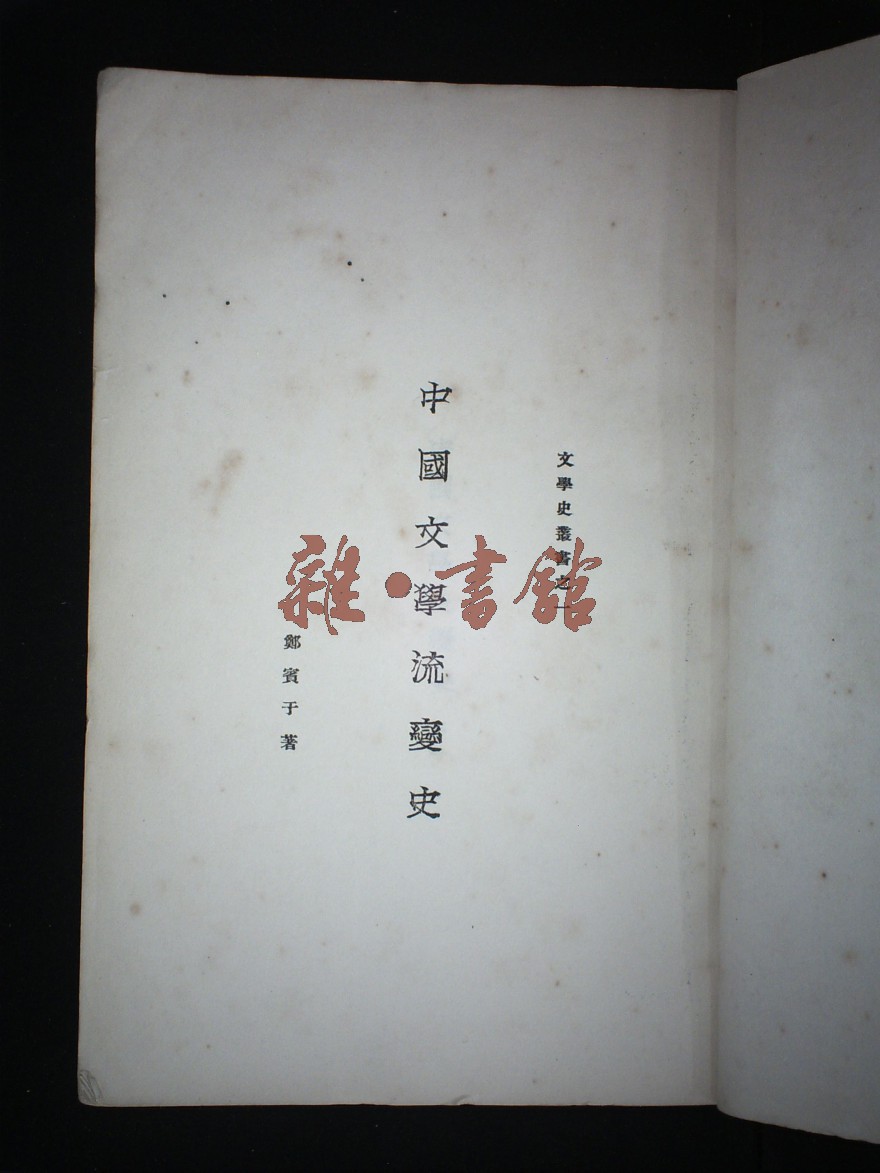 文學史叢書之一
中國文學流變史
鄭賓于著
雜·書館